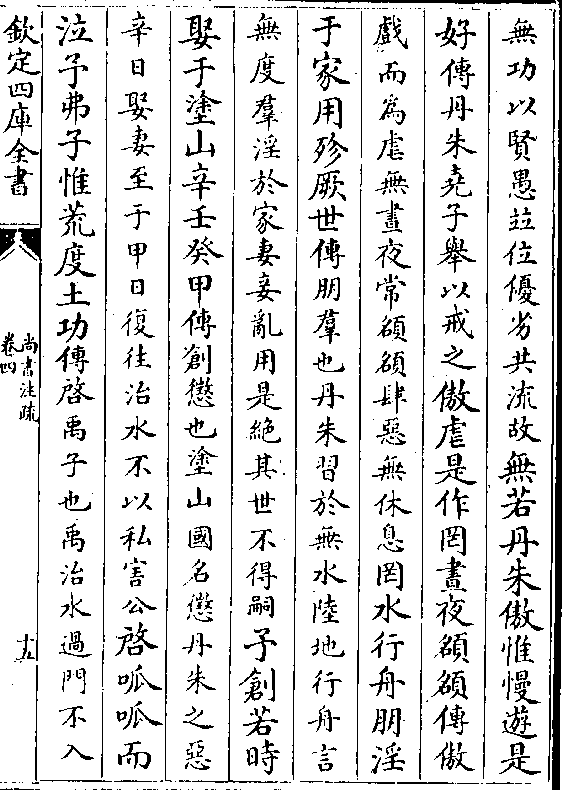 無功以賢愚竝位優劣共流故無若丹朱傲惟慢遊是
好傳丹朱堯子舉以戒之傲虐是作罔晝夜頟頟傳傲
戲而為虐無晝夜常頟頟肆惡無休息罔水行舟朋淫
于家用殄厥世傳朋羣也丹朱習於無水陸地行舟言
無度羣淫於家妻妾亂用是絶其世不得嗣予創若時
娶于塗山辛壬癸甲傳創懲也塗山國名懲丹朱之惡
辛日娶妻至于甲日復往治水不以私害公啓呱呱而
泣予弗子惟荒度土功傳啓禹子也禹治水過門不入
欽定四庫全書
尚書注疏
卷四
十五